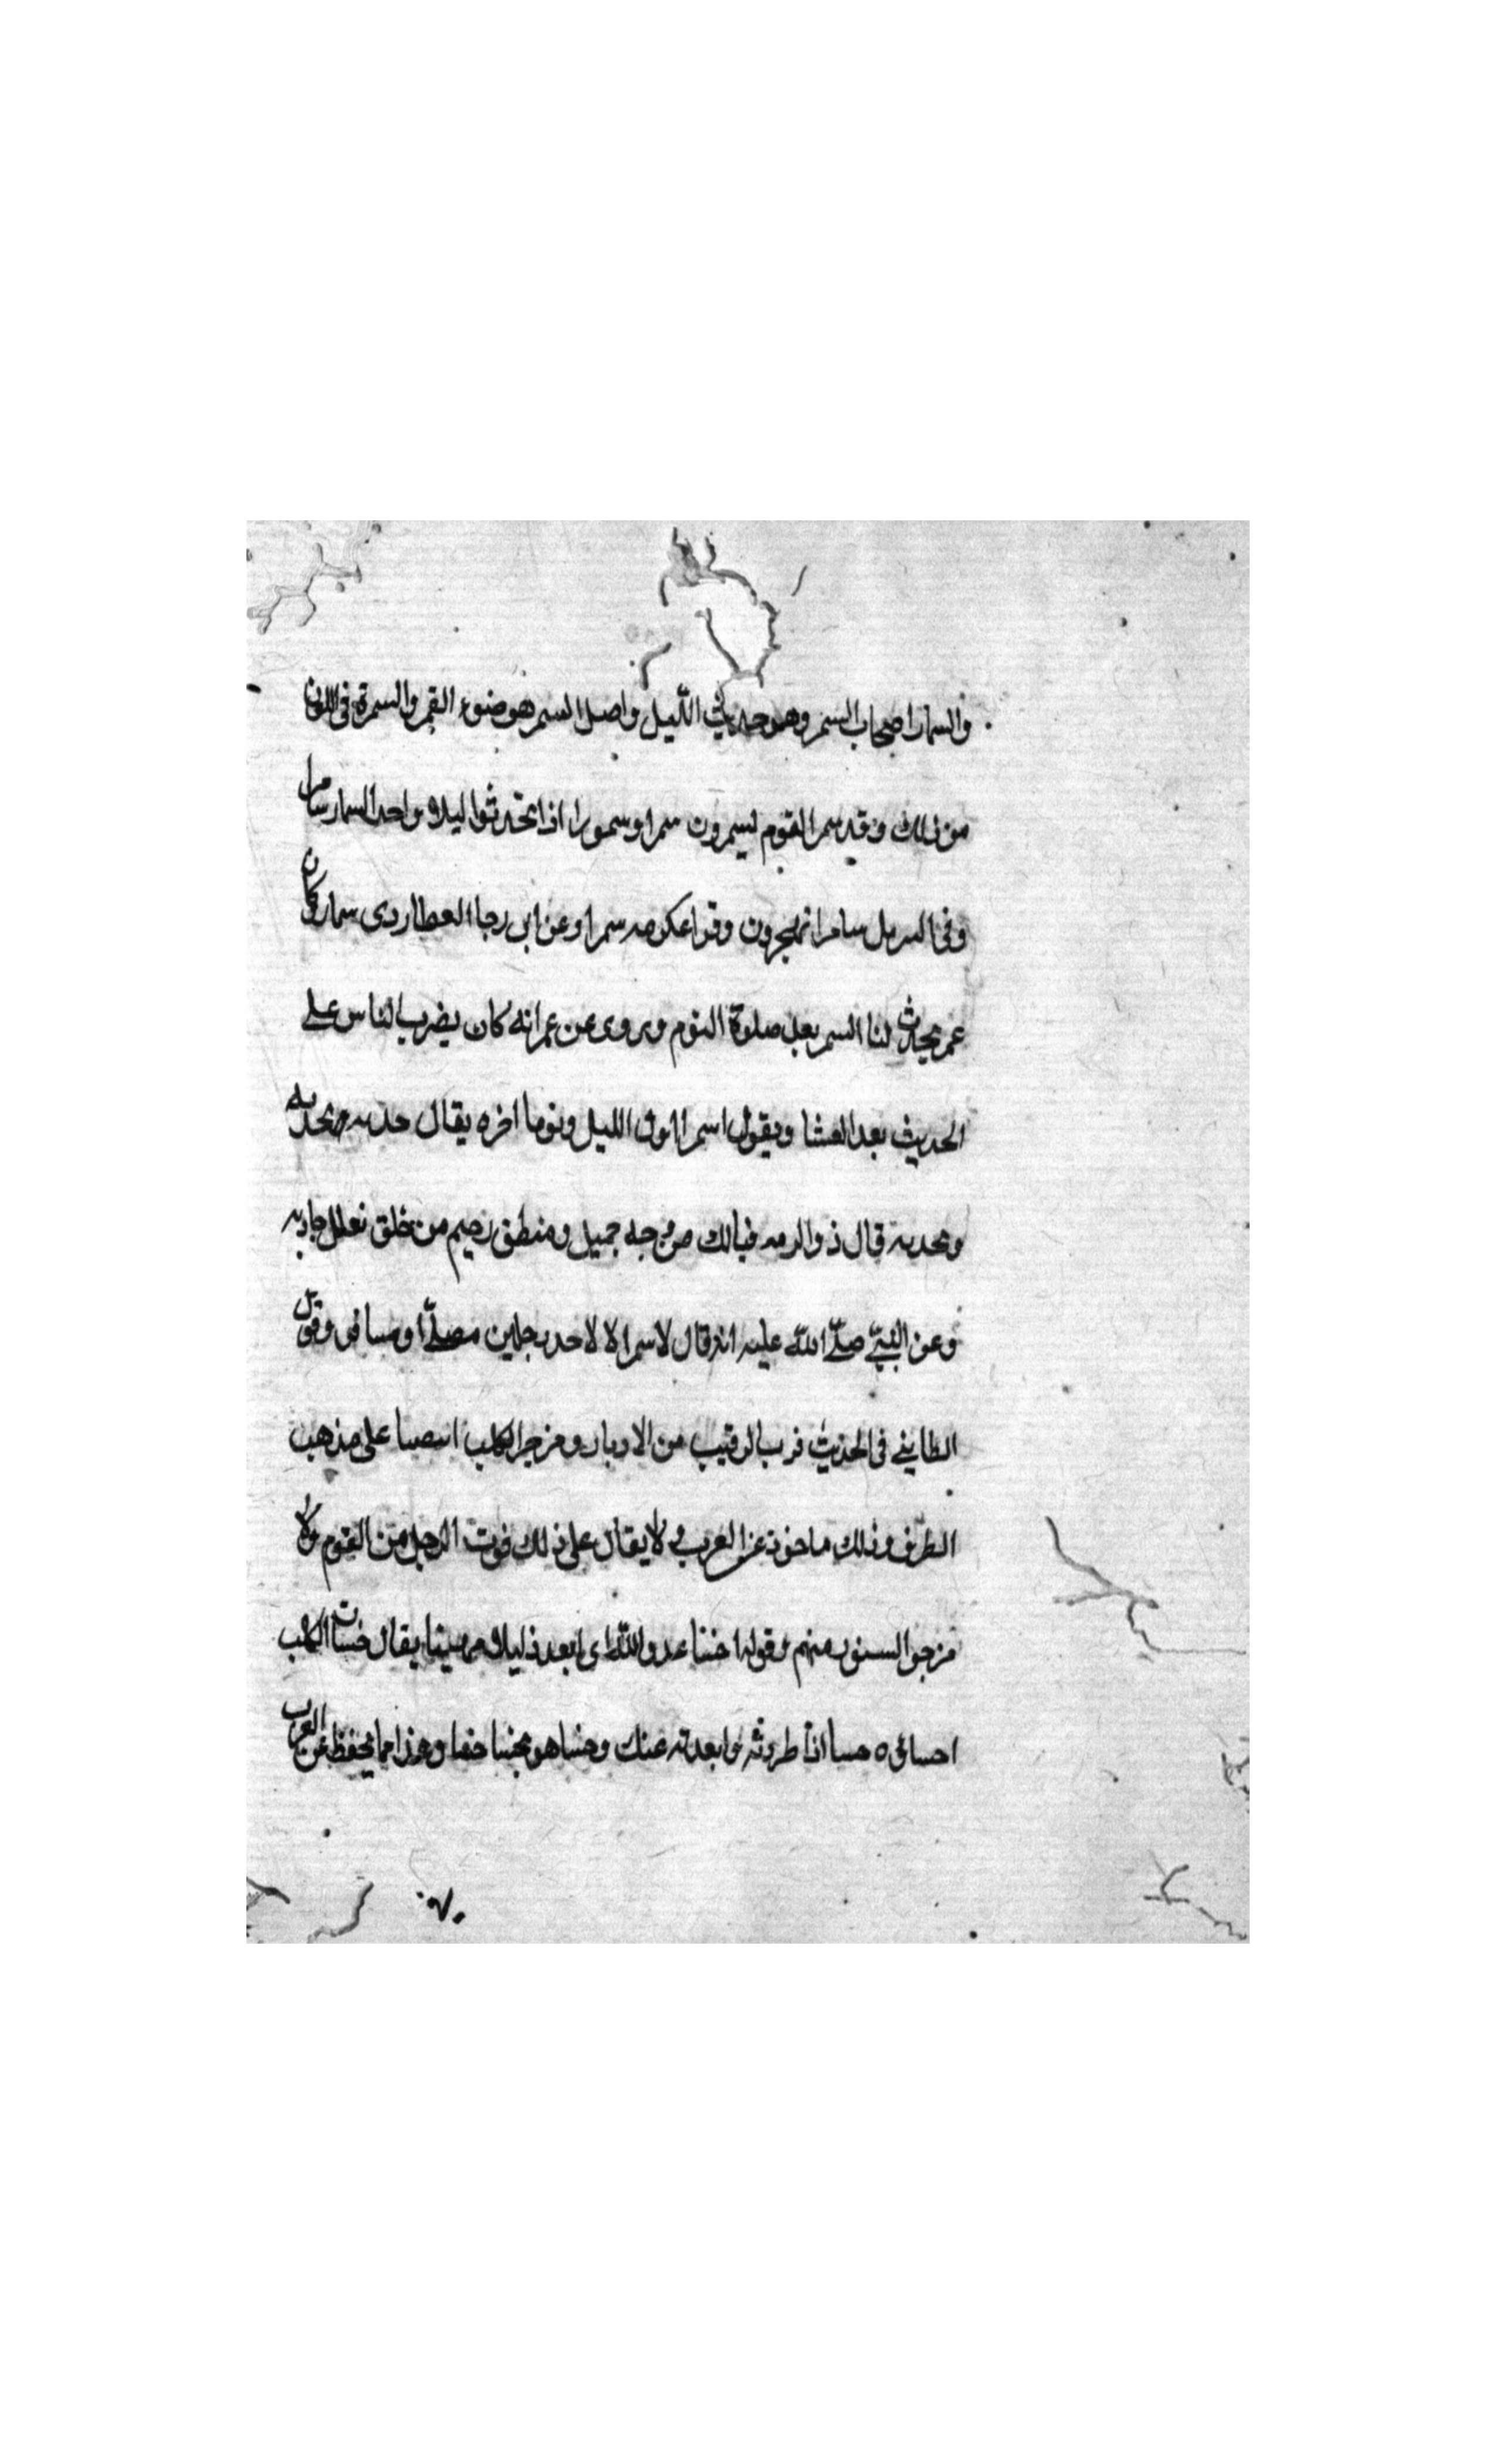 والسمار اصحاب السمر وهو حديث الليل واصل السمر هو ضوء القمر والسمرة في اللون
من ذلك وقد سمر القوم يسمرون سمرا وسمورا اذا تحدثوا ليلا وواحد السمار سامر
وفي سامرا تهجرون وقرا عكرمه سمرا وعن ابي رجا العطاردي سمار وكان
عمر يحدث لنا السمر بعد صلوة النوم ويروى عن عمر انه كان يضرب الناس على
الحديث بعد العشا ويقول اسمرا اول الليل ونوما اخره يقال
قال ذو الرمه فيالك من وجه جميل ومنطق رخيم من خلق تعلل جادبه
وعن النبي صلّى اللّه عليه انه قال لا سمر الا لاحد رجلين مصلّ او مسافر وقول
الطايي في الحديث الرقيب من الادبار ومزجر الكلب على مذهب
الظرف وذلك ماخوذ عن العرب لا يقال على ذلك فوت الرجل من القوم ولا
مزجر السنور منهم وقوله اخسا عدو اللّه اي ابعد ذليلا يقال خسات الكلب
اذا طردته وابعدته عنك وهذا مما يحفظ عن العرب